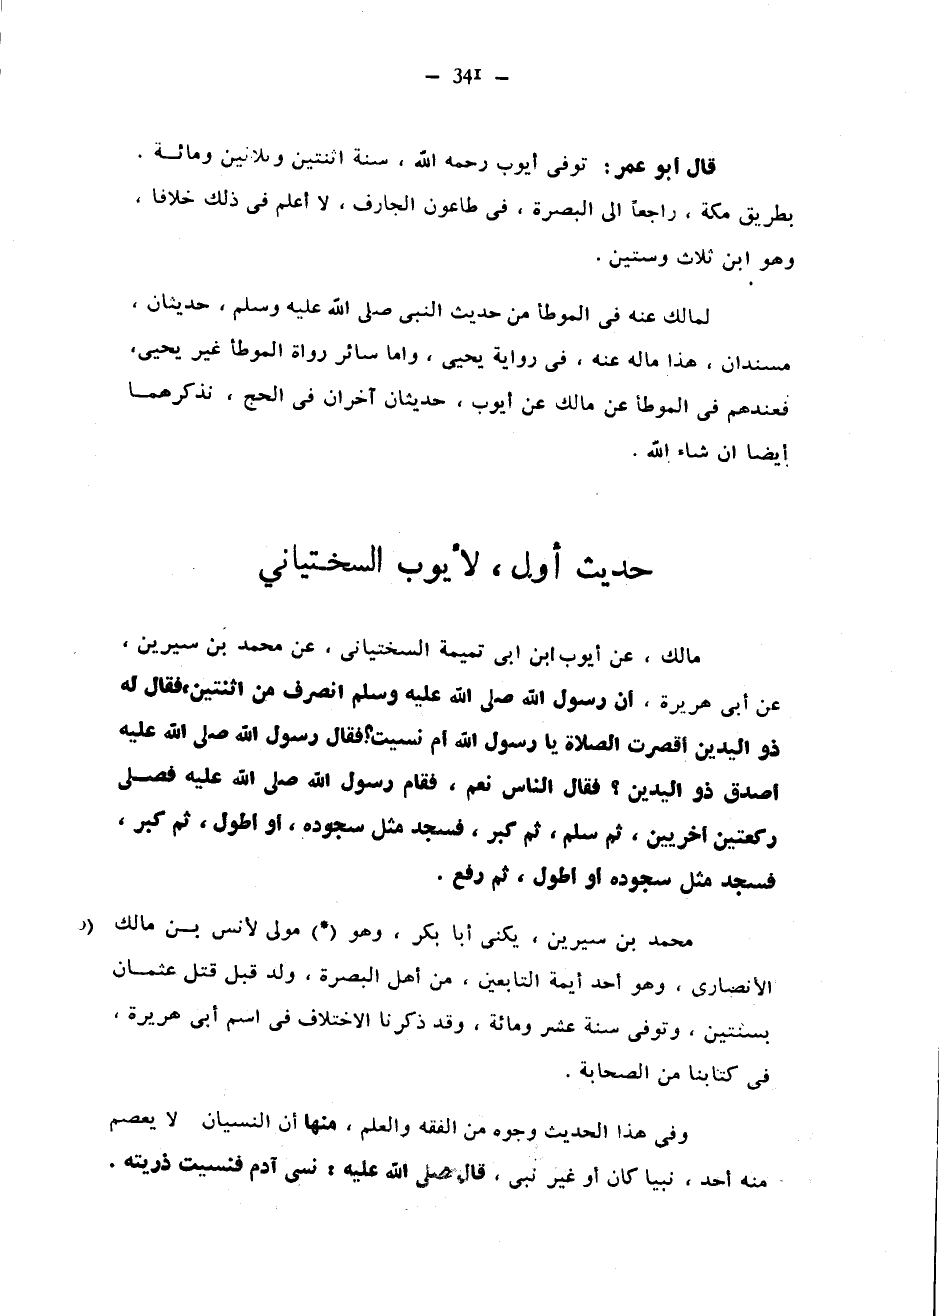 — 341 —
قال أبو عمر : توفى أيوب رحمه الله ، سنة اثنتين وثلاثين ومائة .
بطريق مكة ، راجعاً الى البصرة ، فى طاعون الجارف ، لا أعلم فى ذلك خلافا ،
وهو ابن ثلاث وستين .
لمالك عنه فى الموطأ من حديث النبى صلى الله عليه وسلم ، حديثان ،
مسندان ، هذا ماله عنه ، فى رواية يحيى ، واما سائر رواة الموطأ غير يحيى،
فعندهم فى الموطأ عن مالك عن أيوب ، حديثان آخران فى الحج ، نذكرهما
أيضا ان شاء الله .
حديث أول ، لأيوب السختياني
مالك ، عن أيوب ابن ابى تميمة السختيانى ، عن محمد بن سيرين ،
عن أبى هريرة ، أن رسول الله صلى الله عليه وسلم انصرف من اثنتين،فقال له
ذو اليدين أقصرت الصلاة يا رسول الله أم نسيت؟فقال رسول الله صلى الله عليه
أصدق ذو اليدين ؟ فقال الناس نعم ، فقام رسول الله صلى الله عليه فصلى
ركعتين أخريين ، ثم سلم ، ثم كبر ، فسجد مثل سجوده ، أو أطول ، ثم كبر ،
فسجد مثل سجوده أو أطول ، ثم رفع .
محمد بن سيرين ، يكنى أبا بكر ، وهو (*) مولى لأنس بن مالك
الأنصارى ، وهو أحد أيمة التابعين ، من أهل البصرة ، ولد قبل قتل عثمان
بسنتين ، وتوفى سنة عشر ومائة ، وقد ذكرنا الاختلاف فى اسم أبى هريرة ،
فى كتابنا من الصحابة .
وفى هذا الحديث وجوه من الفقه والعلم ، منها أن النسيان لا يعصم
منه أحد ، نبيا كان أو غير نبى ، قال صلى الله عليه : نسى آدم فنسيت ذريته .